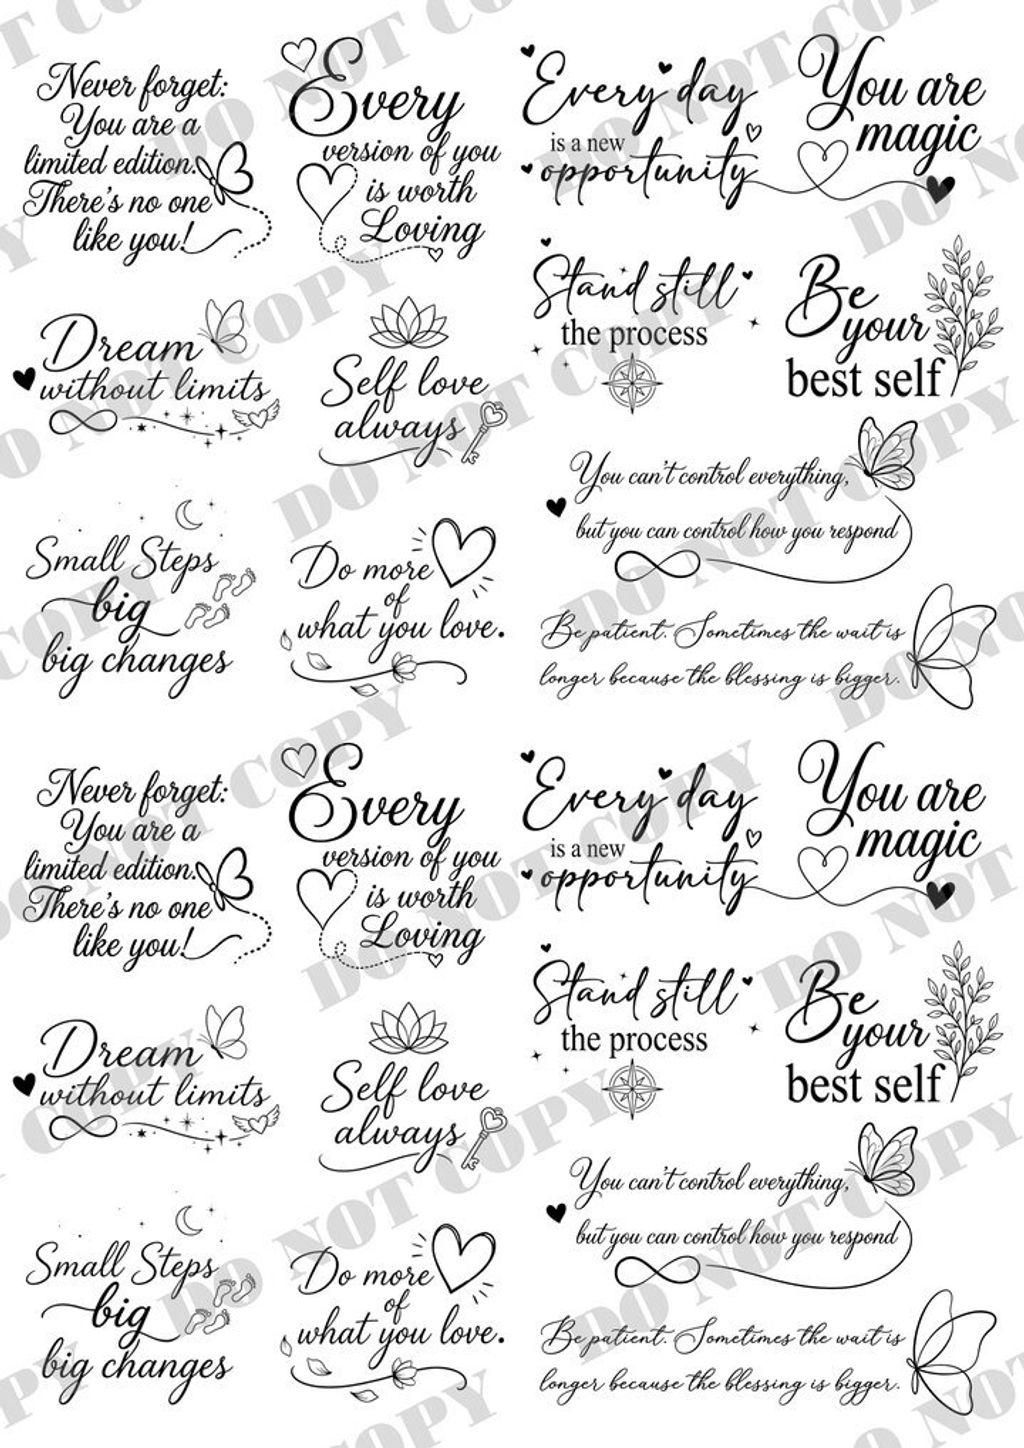 Never forget:
You are a
limited edition.
There's no one
like you!
Every
version of you
is worth
Loving
Every day
is a new
opportunity
You are
magic
Dream
without limits
Self love
always
Stand still
the process
Be
your
best self
Small Steps
big
big changes
Do more
of
what you love.
You can't control everything,
but you can control how you respond
Be patient. Sometimes the wait is
longer because the blessing is bigger.
Never forget:
You are a
limited edition.
There's no one
like you!
Every
version of you
is worth
Loving
Every day
is a new
opportunity
You are
magic
Dream
without limits
Self love
always
Stand still
the process
Be
your
best self
Small Steps
big
big changes
Do more
of
what you love.
You can't control everything,
but you can control how you respond
Be patient. Sometimes the wait is
longer because the blessing is bigger.
DO NOT COPY